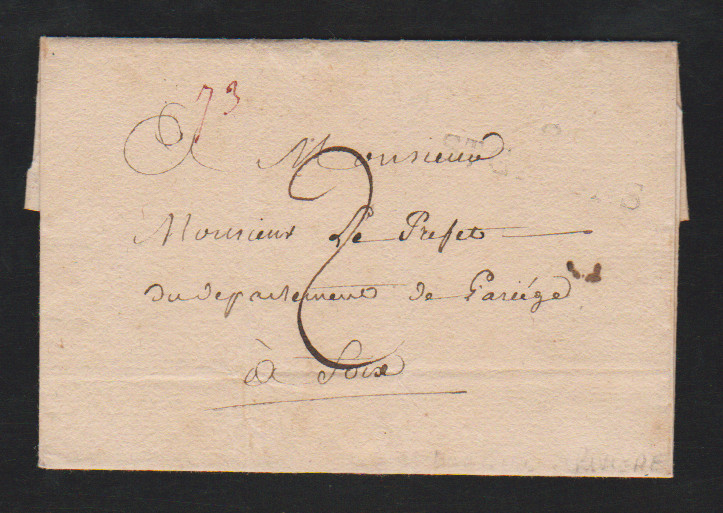 73
A Monsieur
Monsieur Le Prefet
du departement de Lariége
à Foix
2